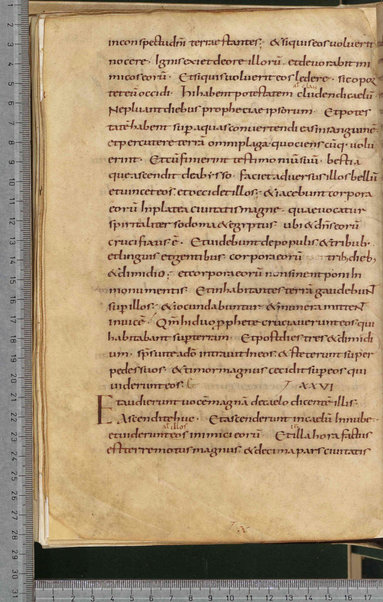 inconspectudnī terrae stantes; & siquis eos voluerit
nocere. Ignis exiet de ore illorū. et devorabit ini
micos eorū. Et siquis voluerit eos ledere. sic opor
tet eū occidi. Hi habent potestatem cludendi caelū
Nepluant diebus prophetiae ipsorum. Et potes
tatē habent sup aquas convertendi eas in sanguinē.
et percutere terrā omni plaga quociens cūq; volu
erint. Et cū finierint testimoniū suū. bestia
que ascendit de abisso. faciet adversus illos bellū
et vincet eos. et occidet illos; & iacebunt corpora
eorū In platea civitatis magne. quae vocatur
spiritaliter sodoma & egyptus. ubi & dn̄s eorū
crucifixus ē. Et videbunt de populis & tribub;
et linguis et gentibus corpora eorū trib; dieb;
& dimidio; et corpora eorū non sinent poni In
monumentis. Et inhabitantes terrā gaudebuN
sup illos; & iocundabuntur & munera mitteN
invicē. Qm̄ hi duo pphetę cruciaverunt eos qui
habitabant sup terram. Et post dies tres & dimidi
um. sps vitae ad̄o intravit In eos. & steterunt super
pedes suos. & timor magnus cecidit sup eos qui
viderunt eos.
XXVI
Et audierunt vocē magnā de caelo dicentē illis.
Ascendite huc. Et ascenderunt in caelū In nube.
illos
et viderunt eos inimici eorū Et illa hora factus
est terremotus magnus. & decima pars civitatis